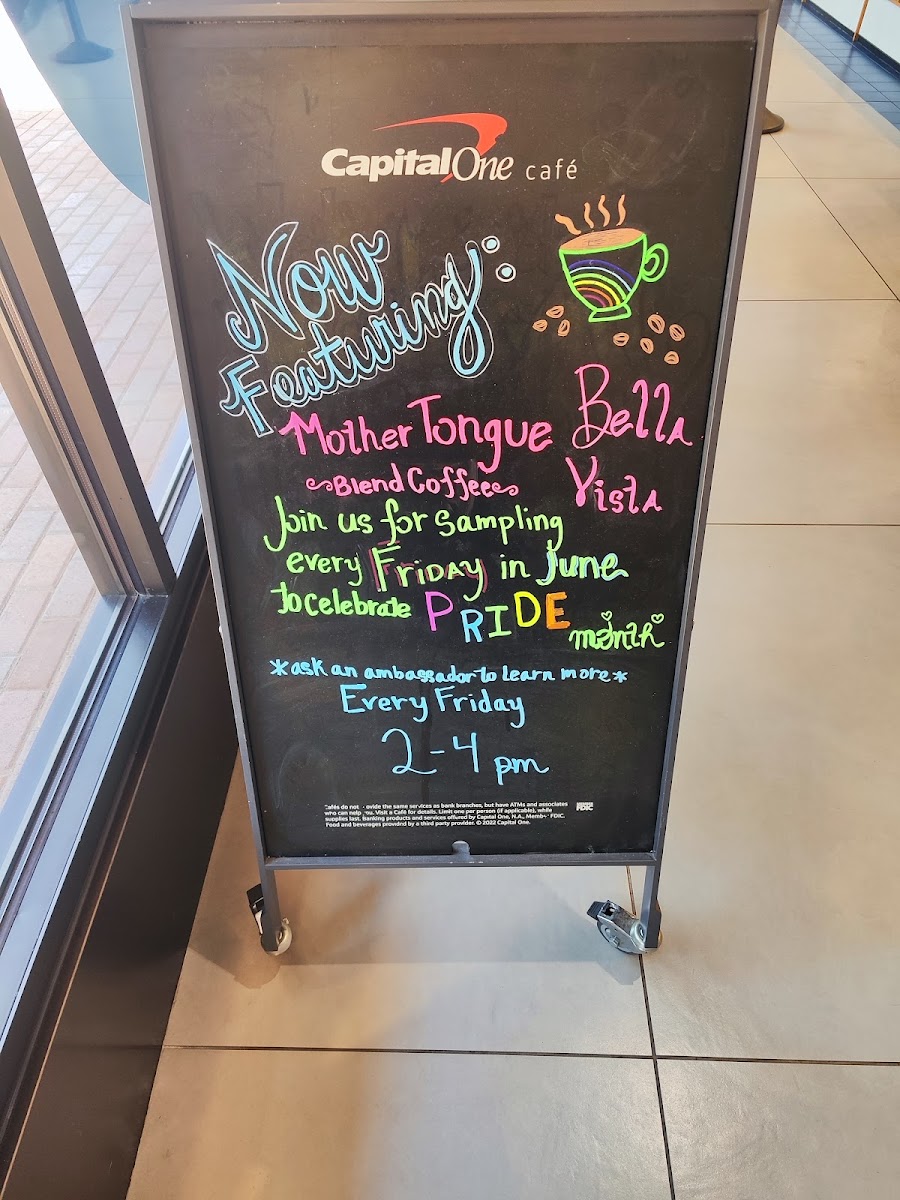 Capital One café
Now
Featuring:
Mother Tongue
Blend Coffee
Bella
Vista
Join us for sampling
every Friday in June
to celebrate PRIDE month
*ask an ambassador to learn more*
Every Friday
2-4 pm
Cafés do not ovide the same services as bank branches, but have ATMs and associates
who can help you. Visit a Café for details. Limit one per person (if applicable), while
supplies last. Banking products and services offered by Capital One, N.A., Member FDIC.
Food and beverages provided by a third party provider. © 2022 Capital One.
FDIC